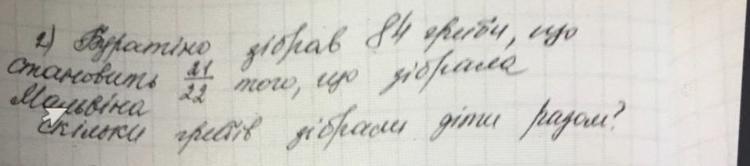 2) Буратіно зібрав 84 гриби, що
становить 21/22 того, що зібрала
Мальвіна
Скільки грибів зібрали діти разом?